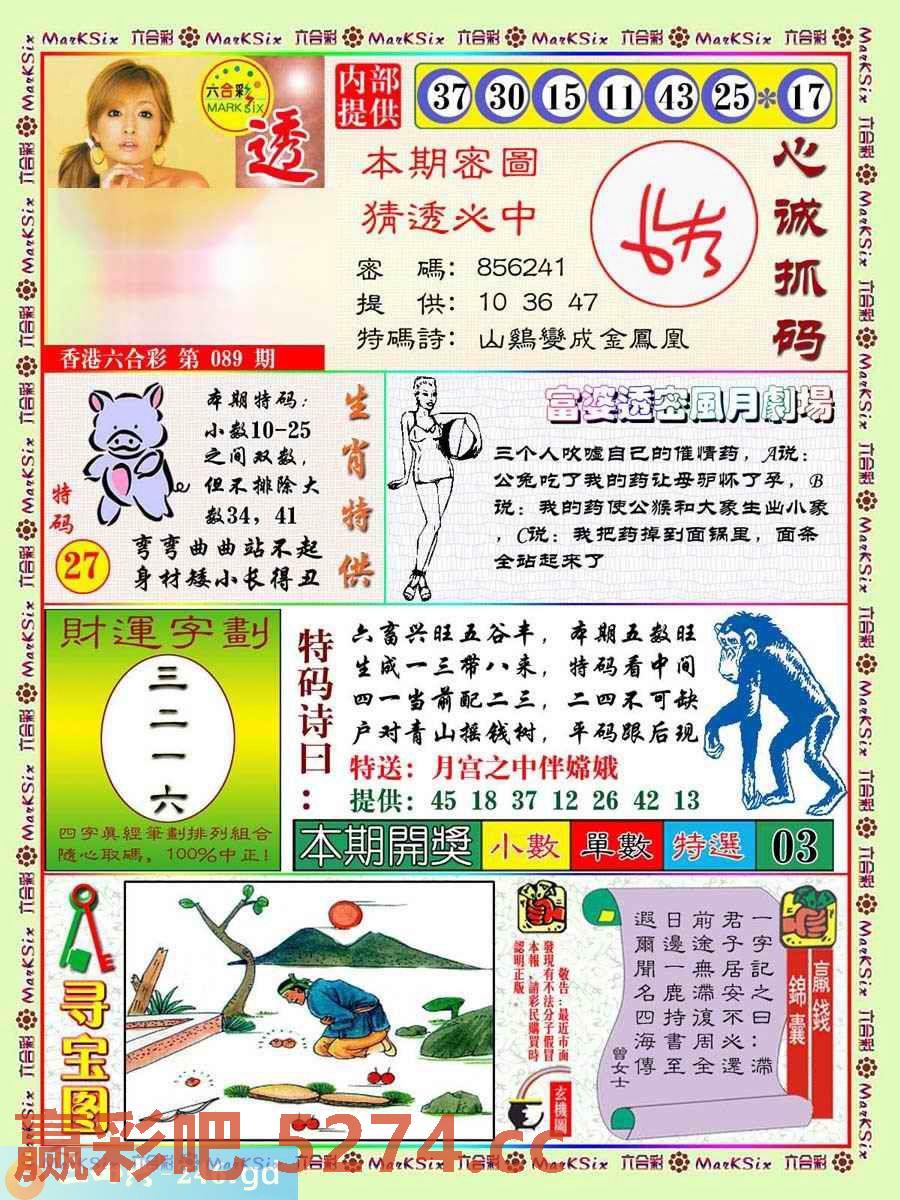 MarKSix 六合彩 MarKSix 六合彩 MarKSix 六合彩 MarKSix 六合彩 MarKSix 六合彩
六合彩
MARK SIX
透
内部
提供
37 30 15 11 43 25 * 17
本期密圖
猜透必中
密 碼: 856241
提 供: 10 36 47
特碼詩: 山鷄變成金鳳凰
心诚抓码
香港六合彩 第 089 期
特码
27
本期特码:
小数10-25
之间双数,
但不排除大
数34, 41
弯弯曲曲站不起
身材矮小长得丑
生肖特供
富婆透密風月劇場
三个人吹嘘自己的催情药, A说:
公兔吃了我的药让母驴怀了孕, B
说: 我的药使公猴和大象生出小象
, C说: 我把药掉到面锅里, 面条
全站起来了
財運字劃
三二一六
四字真經筆劃排列組合
隨心取碼, 100%中正!
特码诗曰:
六畜兴旺五谷丰, 本期五数旺
生成一三带八来, 特码看中间
四一当前配二三, 二四不可缺
户对青山摇钱树, 平码跟后现
特送: 月宫之中伴嫦娥
提供: 45 18 37 12 26 42 13
本期開獎 小數 單數 特選 03
寻宝图
敬告:最近市面
發現有不法分子假冒
本報,請彩民購買時
認明正版。
玄機圖
贏錢
錦囊
一字記之曰:滯
君子居安不必還
前途無滯復周全
日邊一鹿持書至
遐爾聞名四海傳
曾女士
赢彩吧 5274.cc
MarKSix 六合彩 MarKSix 六合彩 MarKSix 六合彩